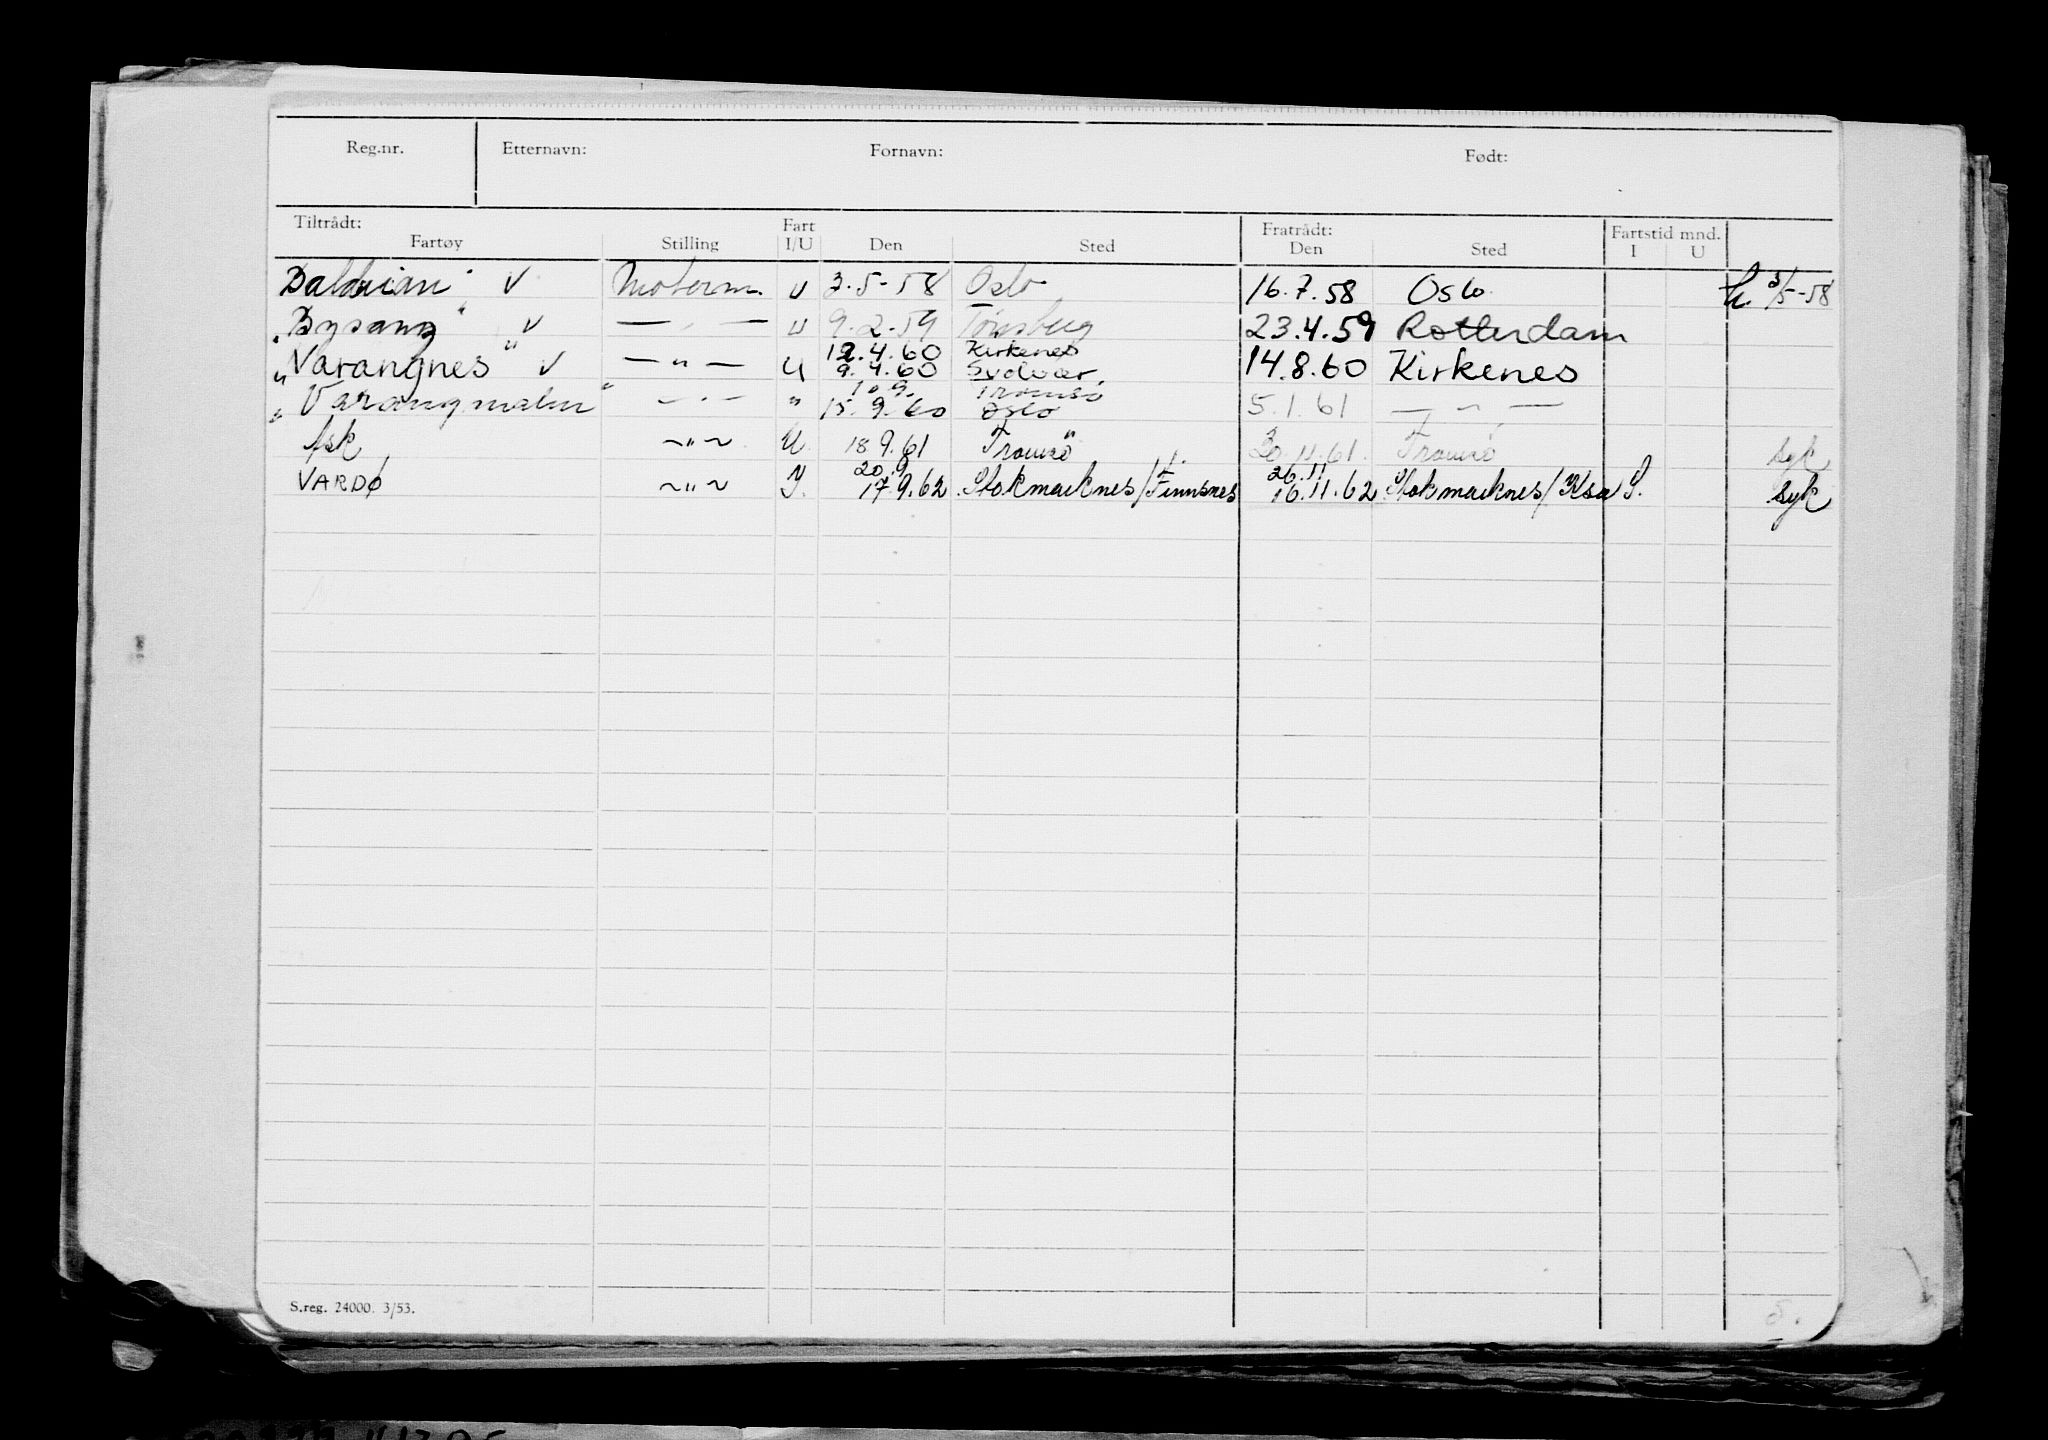 Reg.nr. Etternavn: Fornavn: Født:
Tiltrådt: Fartøy Stilling Fart I/U Den Sted Fratrådt: Den Sted Fartstid mnd. I U
Baldrian" v Motorm. U 3.5-58 Oslo 16.7.58 Oslo 3/5-58
"Bysanz" v — " — U 9.2.59 Tönsberg 23.4.59 Rotterdam
12.4.60 Kirkenes
"Varangnes" v — " — U 9.4.60 Svolvær 14.8.60 Kirkenes
10.9. Tromsø
"Varangmalm" — " — " 15.9.60 Oslo 5.1.61 — " —
Ask ~"~ U 18 9.61 Tromsö 30.11.61. Tromsö syk
20.9 26.11
VARDØ ~"~ I. 17.9.62 Stokmarknes/Finnsnes 16.11.62 Stokmarknes/Ksa S. syk
S.reg. 24000. 3/53.